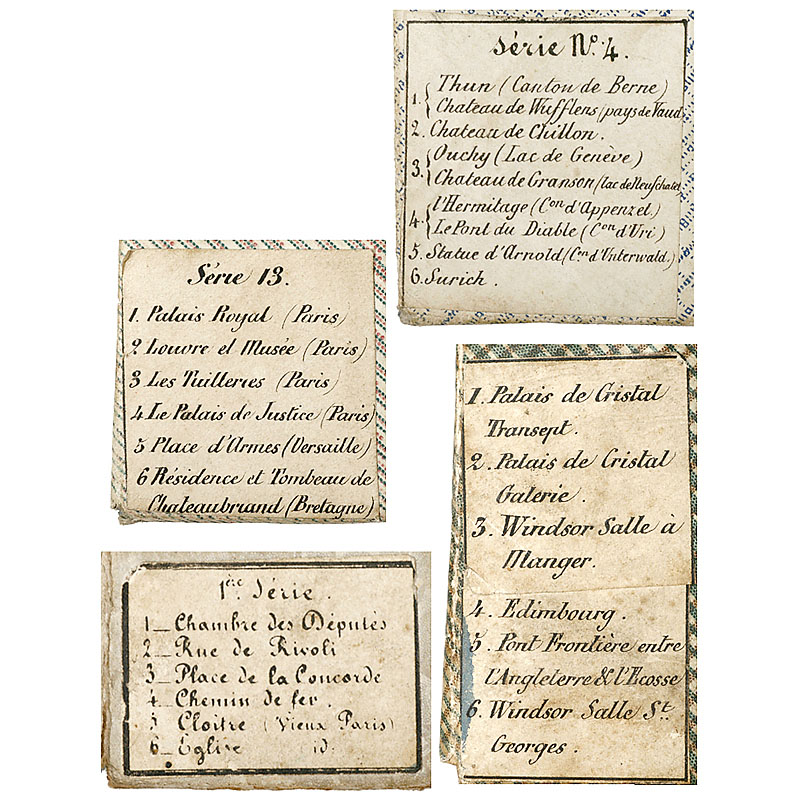 Série Nº 4.
1. { Thun (Canton de Berne)
Chateau de Wufflens (pays de Vaud)
2. Chateau de Chillon.
3. { Ouchy (Lac de Genève)
Chateau de Granson (lac de Neufchatel)
4. { l'Hermitage (Con d'Appenzel)
Le Pont du Diable (Con d'Uri)
5. Statue d'Arnold (Con d'Unterwald.)
6. Surich.
Série 13.
1. Palais Royal (Paris)
2 Louvre et Musée (Paris)
3 Les Tuilleries (Paris)
4 Le Palais de Justice (Paris)
5 Place d'Armes (Versaille)
6 Résidence et Tombeau de
Chateaubriand (Bretagne)
1. Palais de Cristal
Transept.
2. Palais de Cristal
Galerie.
3. Windsor Salle à
Manger.
4. Edimbourg.
5. Pont Frontière entre
l'Angleterre & l'Ecosse
6. Windsor Salle St.
Georges.
1ère Série.
1_ Chambre des Députés
2_ Rue de Rivoli
3_ Place de la Concorde
4_ Chemin de fer.
5 Cloitre (Vieux Paris)
6_ Église id.